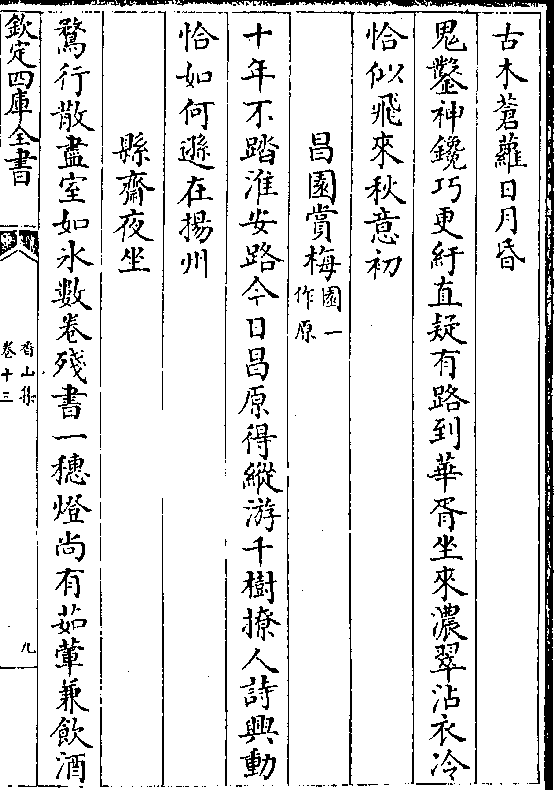 古木蒼蘿日月昏
鬼鑿神鑱巧更紆直疑有路到華胥坐來濃翠沾衣冷
恰似飛來秋意初
昌園賞梅園一作原
十年不踏淮安路今日昌原得縱游千樹撩人詩興動
恰如何遜在揚州
縣齋夜坐
鵞行散盡室如氷數卷殘書一穗燈尚有茹葷兼飲酒
欽定四庫全書
香山集
卷十三
九